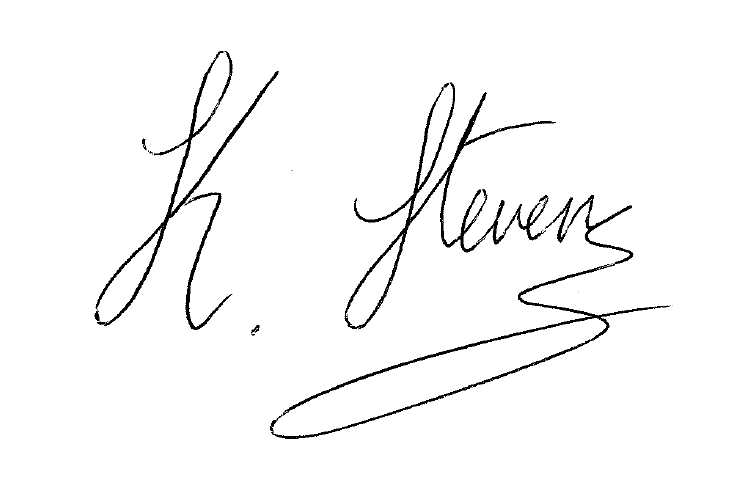 K. Stevens